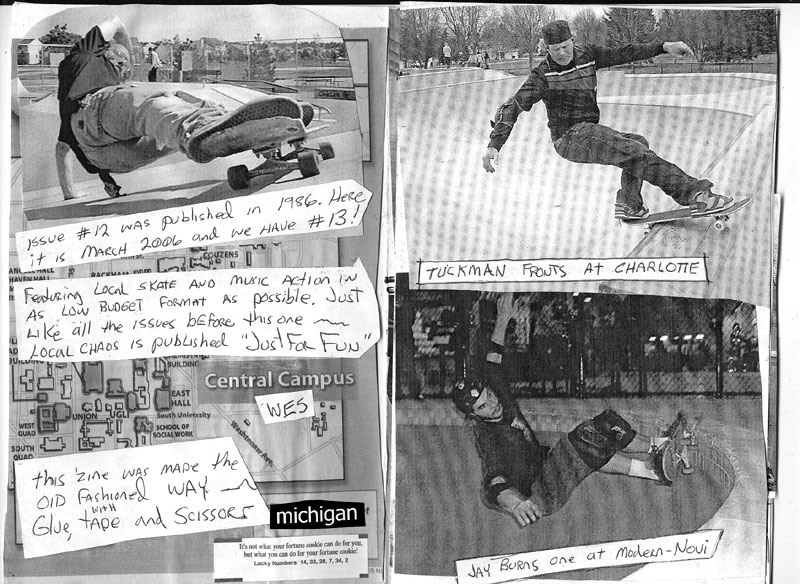 ISSUE #12 WAS PUBLISHED IN 1986. HERE
it is MARCH 2006 and we HAVE #13!
COUZENS
Featuring Local SKATE AND MUSIC ACTION IN
AS LOW BUDGET FORMAT AS POSSIBLE. Just
LIKE all the issues before this one
LOCAL CHAOS is published "JUST FOR FUN"
BUILDING
Central Campus
EAST
HALL
WES
UNION
UGLI
South University
WEST
QUAD
SCHOOL OF
SOCIAL WORK
Washtenaw Ave.
SOUTH
QUAD
this 'zine was made the
OlD Fashioned WAY
WITH
Glue, TAPE and SCISSORS
michigan
It's not what your fortune cookie can do for you,
but what you can do for your fortune cookie!
Lucky Numbers 14, 33, 28, 7, 34, 2
TUCKMAN FRONTS AT CHARLOTTE
JAY BURNS one at Modern-Novi